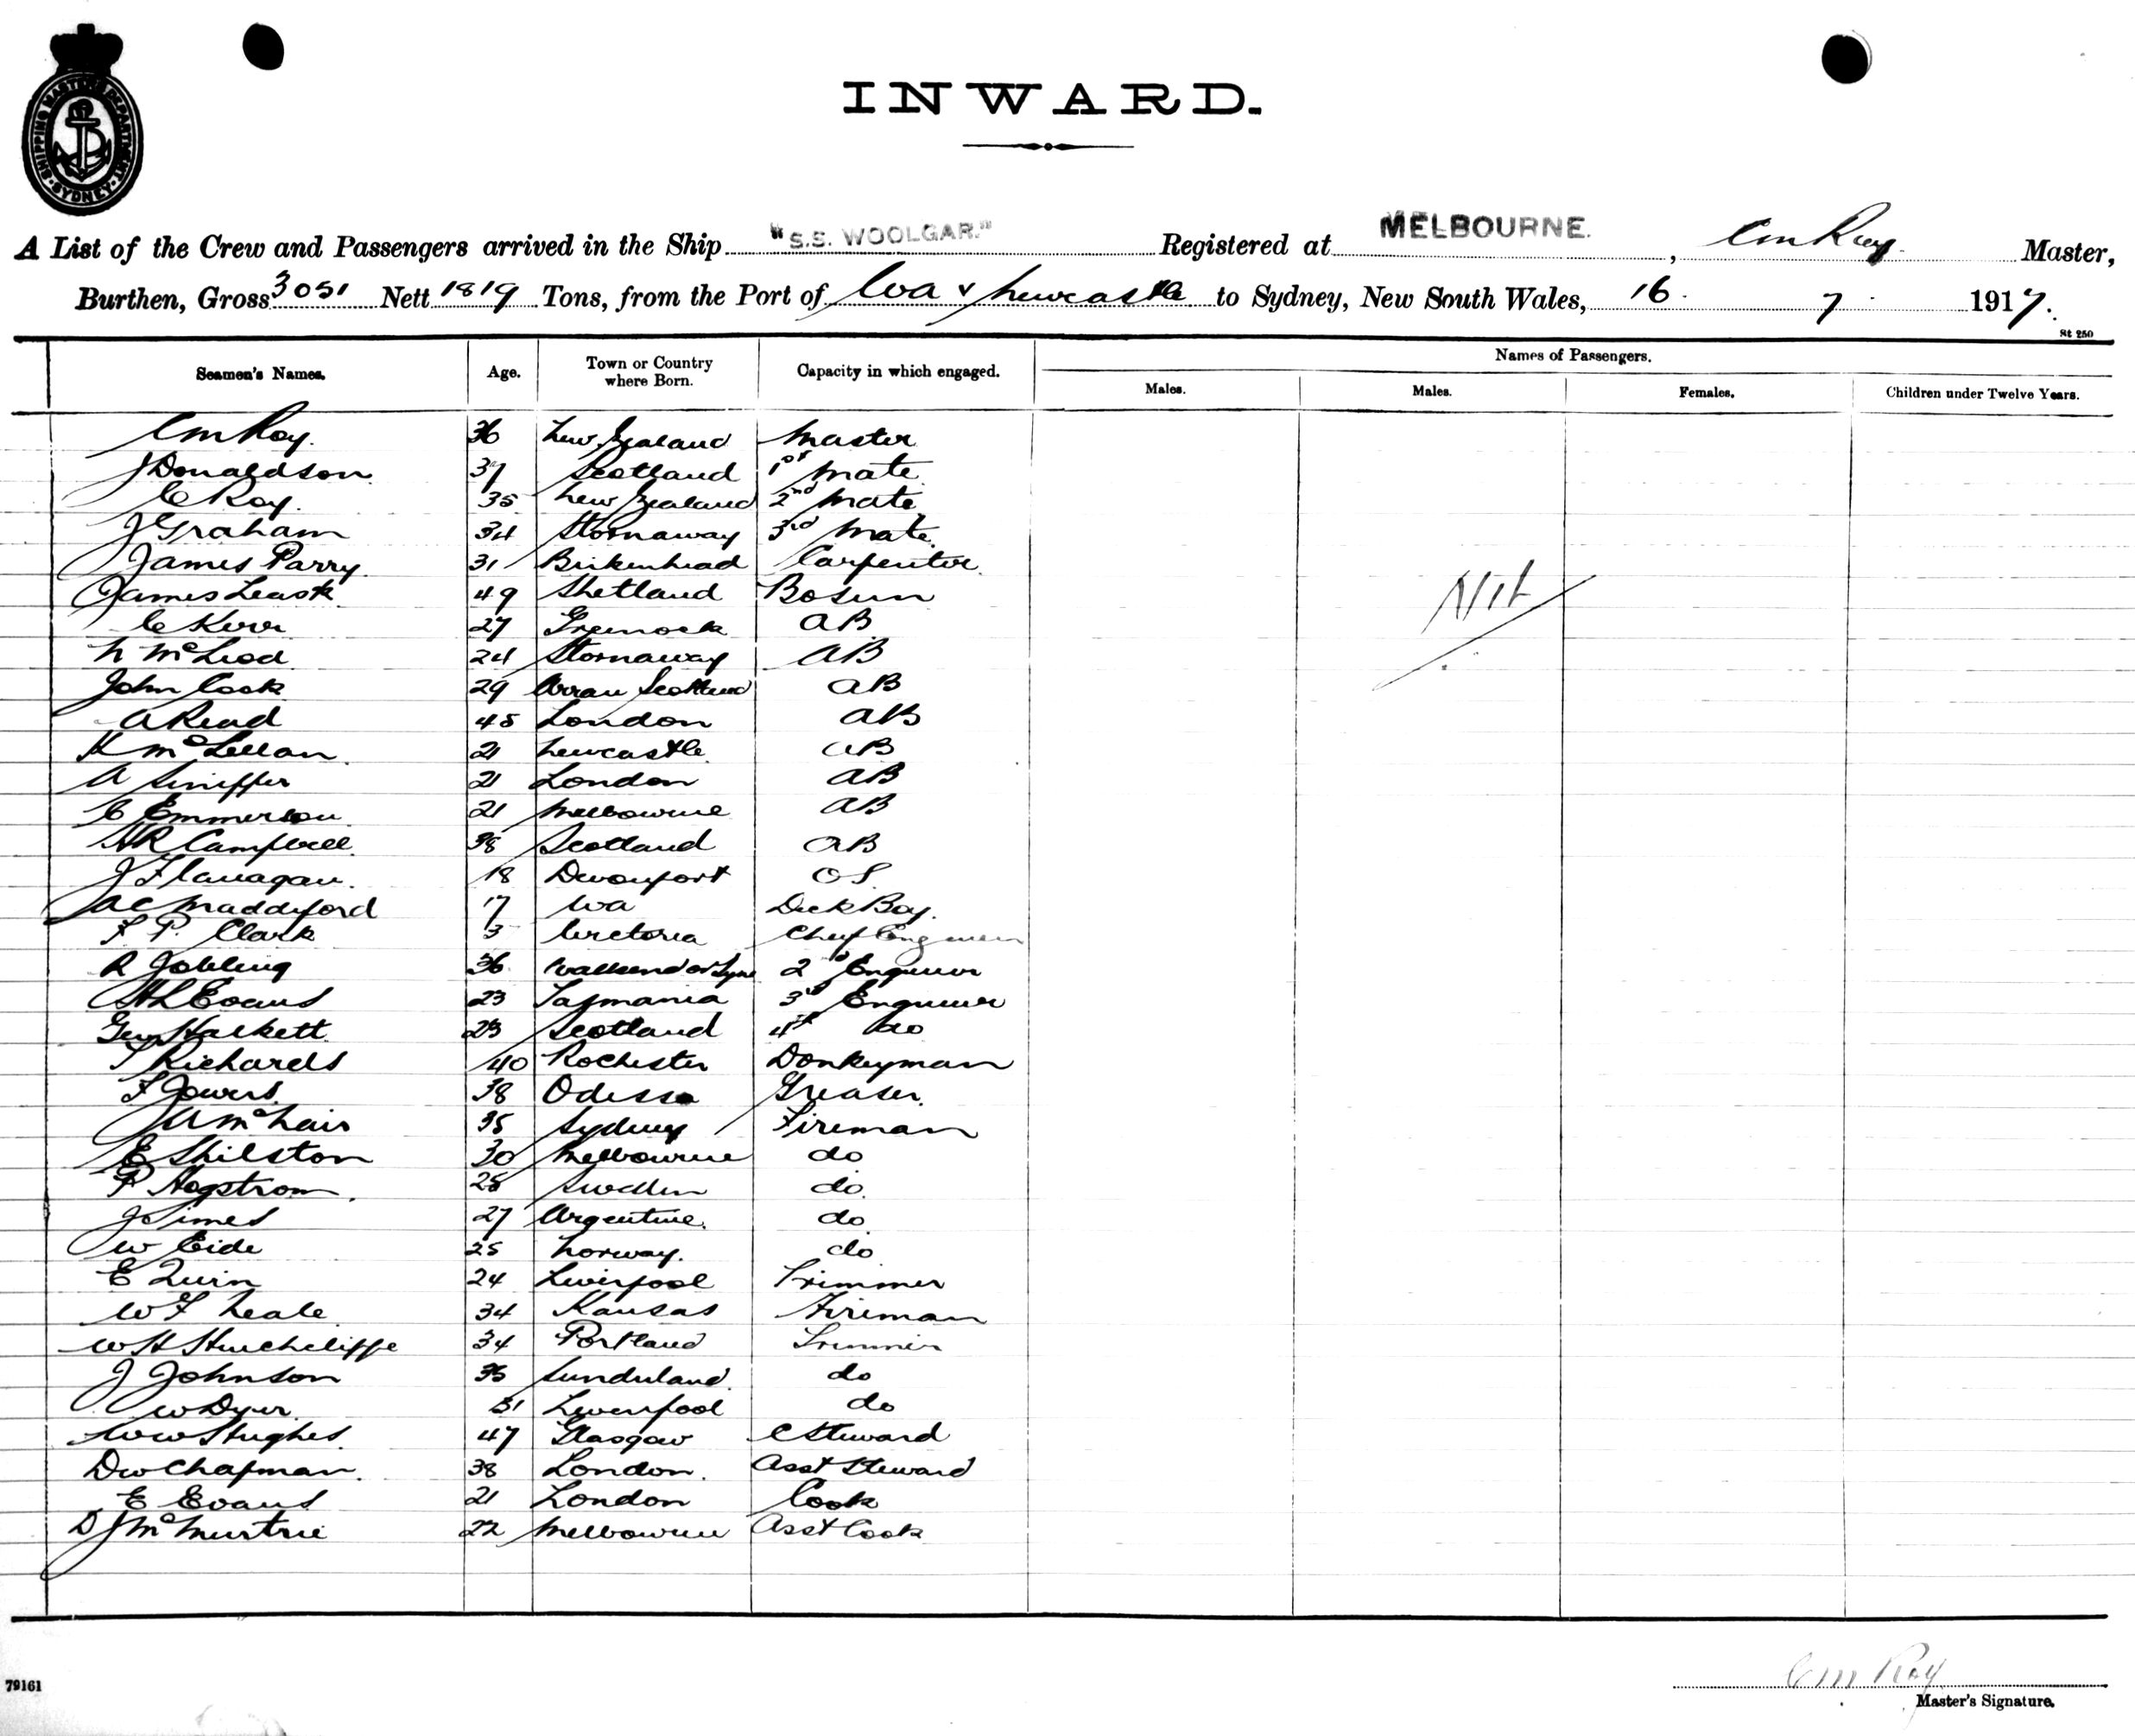 SHIPPING MASTERS DEPARTMENT SYDNEY
INWARD.
A List of the Crew and Passengers arrived in the Ship "S.S. WOOLGAR." Registered at MELBOURNE., CM Roy Master,
Burthen, Gross 3051 Nett 1819 Tons, from the Port of Wa & Newcastle to Sydney, New South Wales, 16. 7. 1917.
St 250
Seamen's Names. Age. Town or Country where Born. Capacity in which engaged. Names of Passengers.
Males. Males. Females. Children under Twelve Years.
CM Roy. 36 New Zealand Master
J Donaldson 37 Scotland 1st Mate
C Roy. 35 New Zealand 2nd Mate
J Graham 34 Stornaway 3rd Mate.
James Parry. 31 Birkenhead Carpenter.
James Leask 49 Shetland Bosun
NIL
C Kerr 27 Greenock AB
N McLeod 24 Stornaway AB
John Cook 29 Arran Scotland AB
A Read 45 London AB
K McLellan. 21 Newcastle AB
A 21 London AB
C Emmerson 21 Melbourne AB
HR Campbell. 38 Scotland AB
J Flanagan. 18 Devonport OS.
Maddiford 17 Wa Deck Boy.
F. P. Clark 3 Victoria Chief Engineer
R Jobling 36 Wallsend on Tyne 2nd Engineer
HL Evans 23 Tasmania 3rd Engineer
Geo Hackett. 23 Scotland 4th do
T Richards 40 Rochester Donkeyman
F Jowers. 38 Odessa Greaser.
McNair 35 Sydney Fireman
E Shilston 30 Melbourne do
P Hogstrom. 28 Sweden do.
J Simes 27 Argentine. do
W Eide 25 Norway. do
E Quin 24 Liverpool Trimmer
WF Neale 34 Kansas Fireman
WH Hinchcliffe 34 Portland Trimmer
J Johnson 35 Sunderland. do
W Dyer. 31 Liverpool do
WW Hughes. 47 Glasgow C Steward
DW Chapman. 38 London. Asst Steward
E Evans 21 London Cook
DJ McMurtrie 22 Melbourne Asst Cook
CM Roy
79161
Master's Signature.